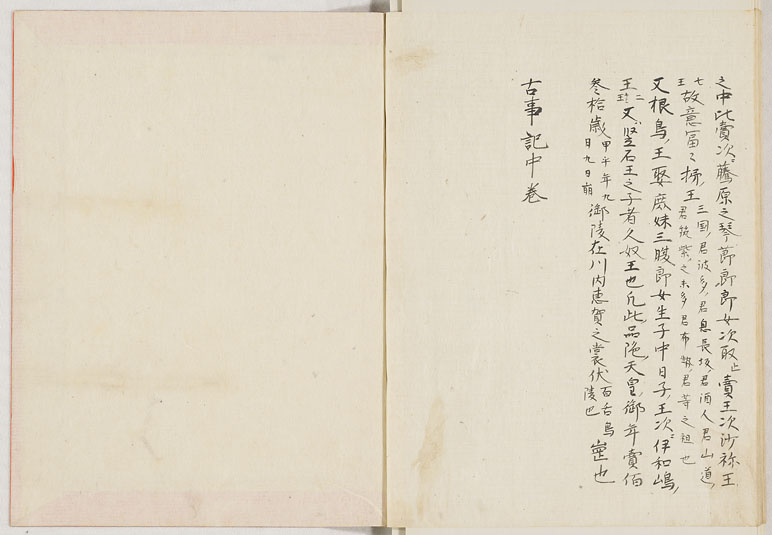 之中比賣次藤原之琴節郎郎女次取止賣王次沙祢王
七王
故意冨々杼王
三国君波多君息長坂君酒人君山道
君筑紫之末多君布勢君等之祖也
又根鳥王娶庶妹三腹郎女生子中日子王次伊和嶋
王二
柱
又堅石王之子者久奴王也凡此品陁天皇御年壹佰
参拾歳
甲午年九
月九日崩
御陵在川内恵賀之裳伏
百舌鳥
陵也
崗也
古事記中巻